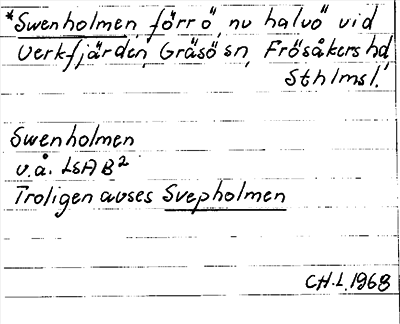 *Swenholmen, förr ö, nu halvö vid
Verkfjärden, Gräsö sn, Frösåkers hd
Sthlms l.
Swenholmen
v.å. LSA B²
Troligen avses Svepholmen
C.H.L. 1968